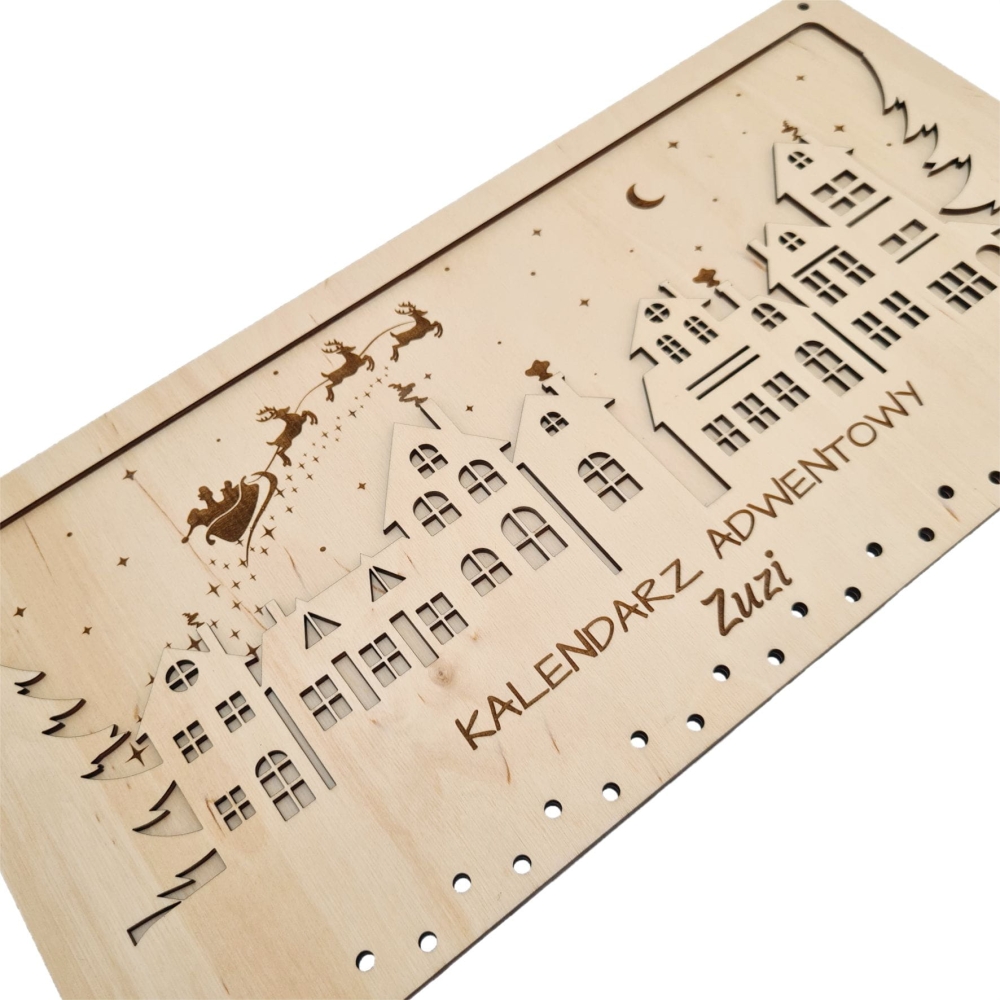 KALENDARZ ADWENTOWY
Zuzi